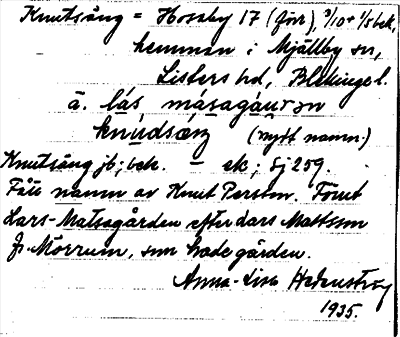 Knutsäng = Hosaby 17 (förr), 3/10 + 1/5 bek.,
hemman i Mjällby sn,
Listers hd, Blekinge l.
a. lás másagáuran
knúdsæŋ (nytt namn.)
Knutsäng jb; bek. – ek; Sj 259.
Fått namn av Knut Persson. Förut
Lars-Matsagården efter Lars Mattsson
fr. Mörrum, som hade gården.
Anna-Lisa Hedenström
1935.